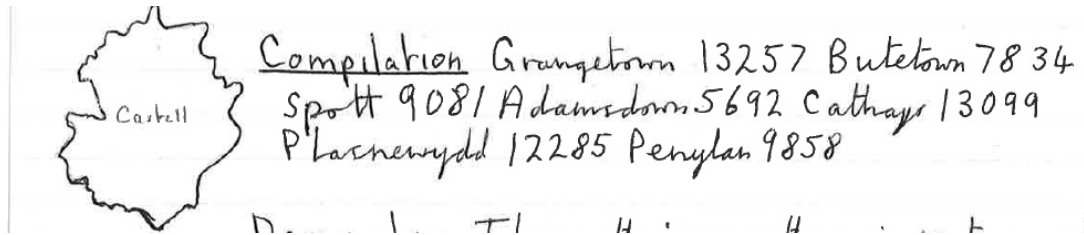 Compilation Grangetown 13257 Butetown 7834
Castell
Splott 9081 Adamsdown 5692 Cathays 13099
Plasnewydd 12285 Penylan 9858